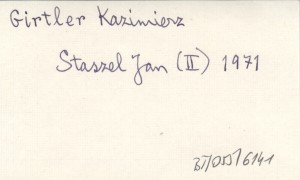 Girtler Kazimierz
Staszel Jan (II) 1971
BT/OSS/6141